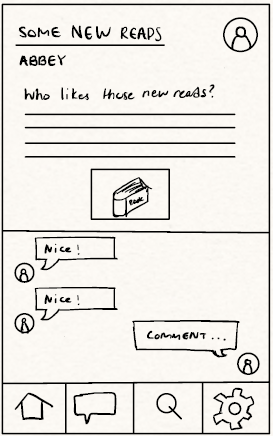 SOME NEW READS
ABBEY
Who likes these new reads?
BOOK
Nice!
Nice!
COMMENT...